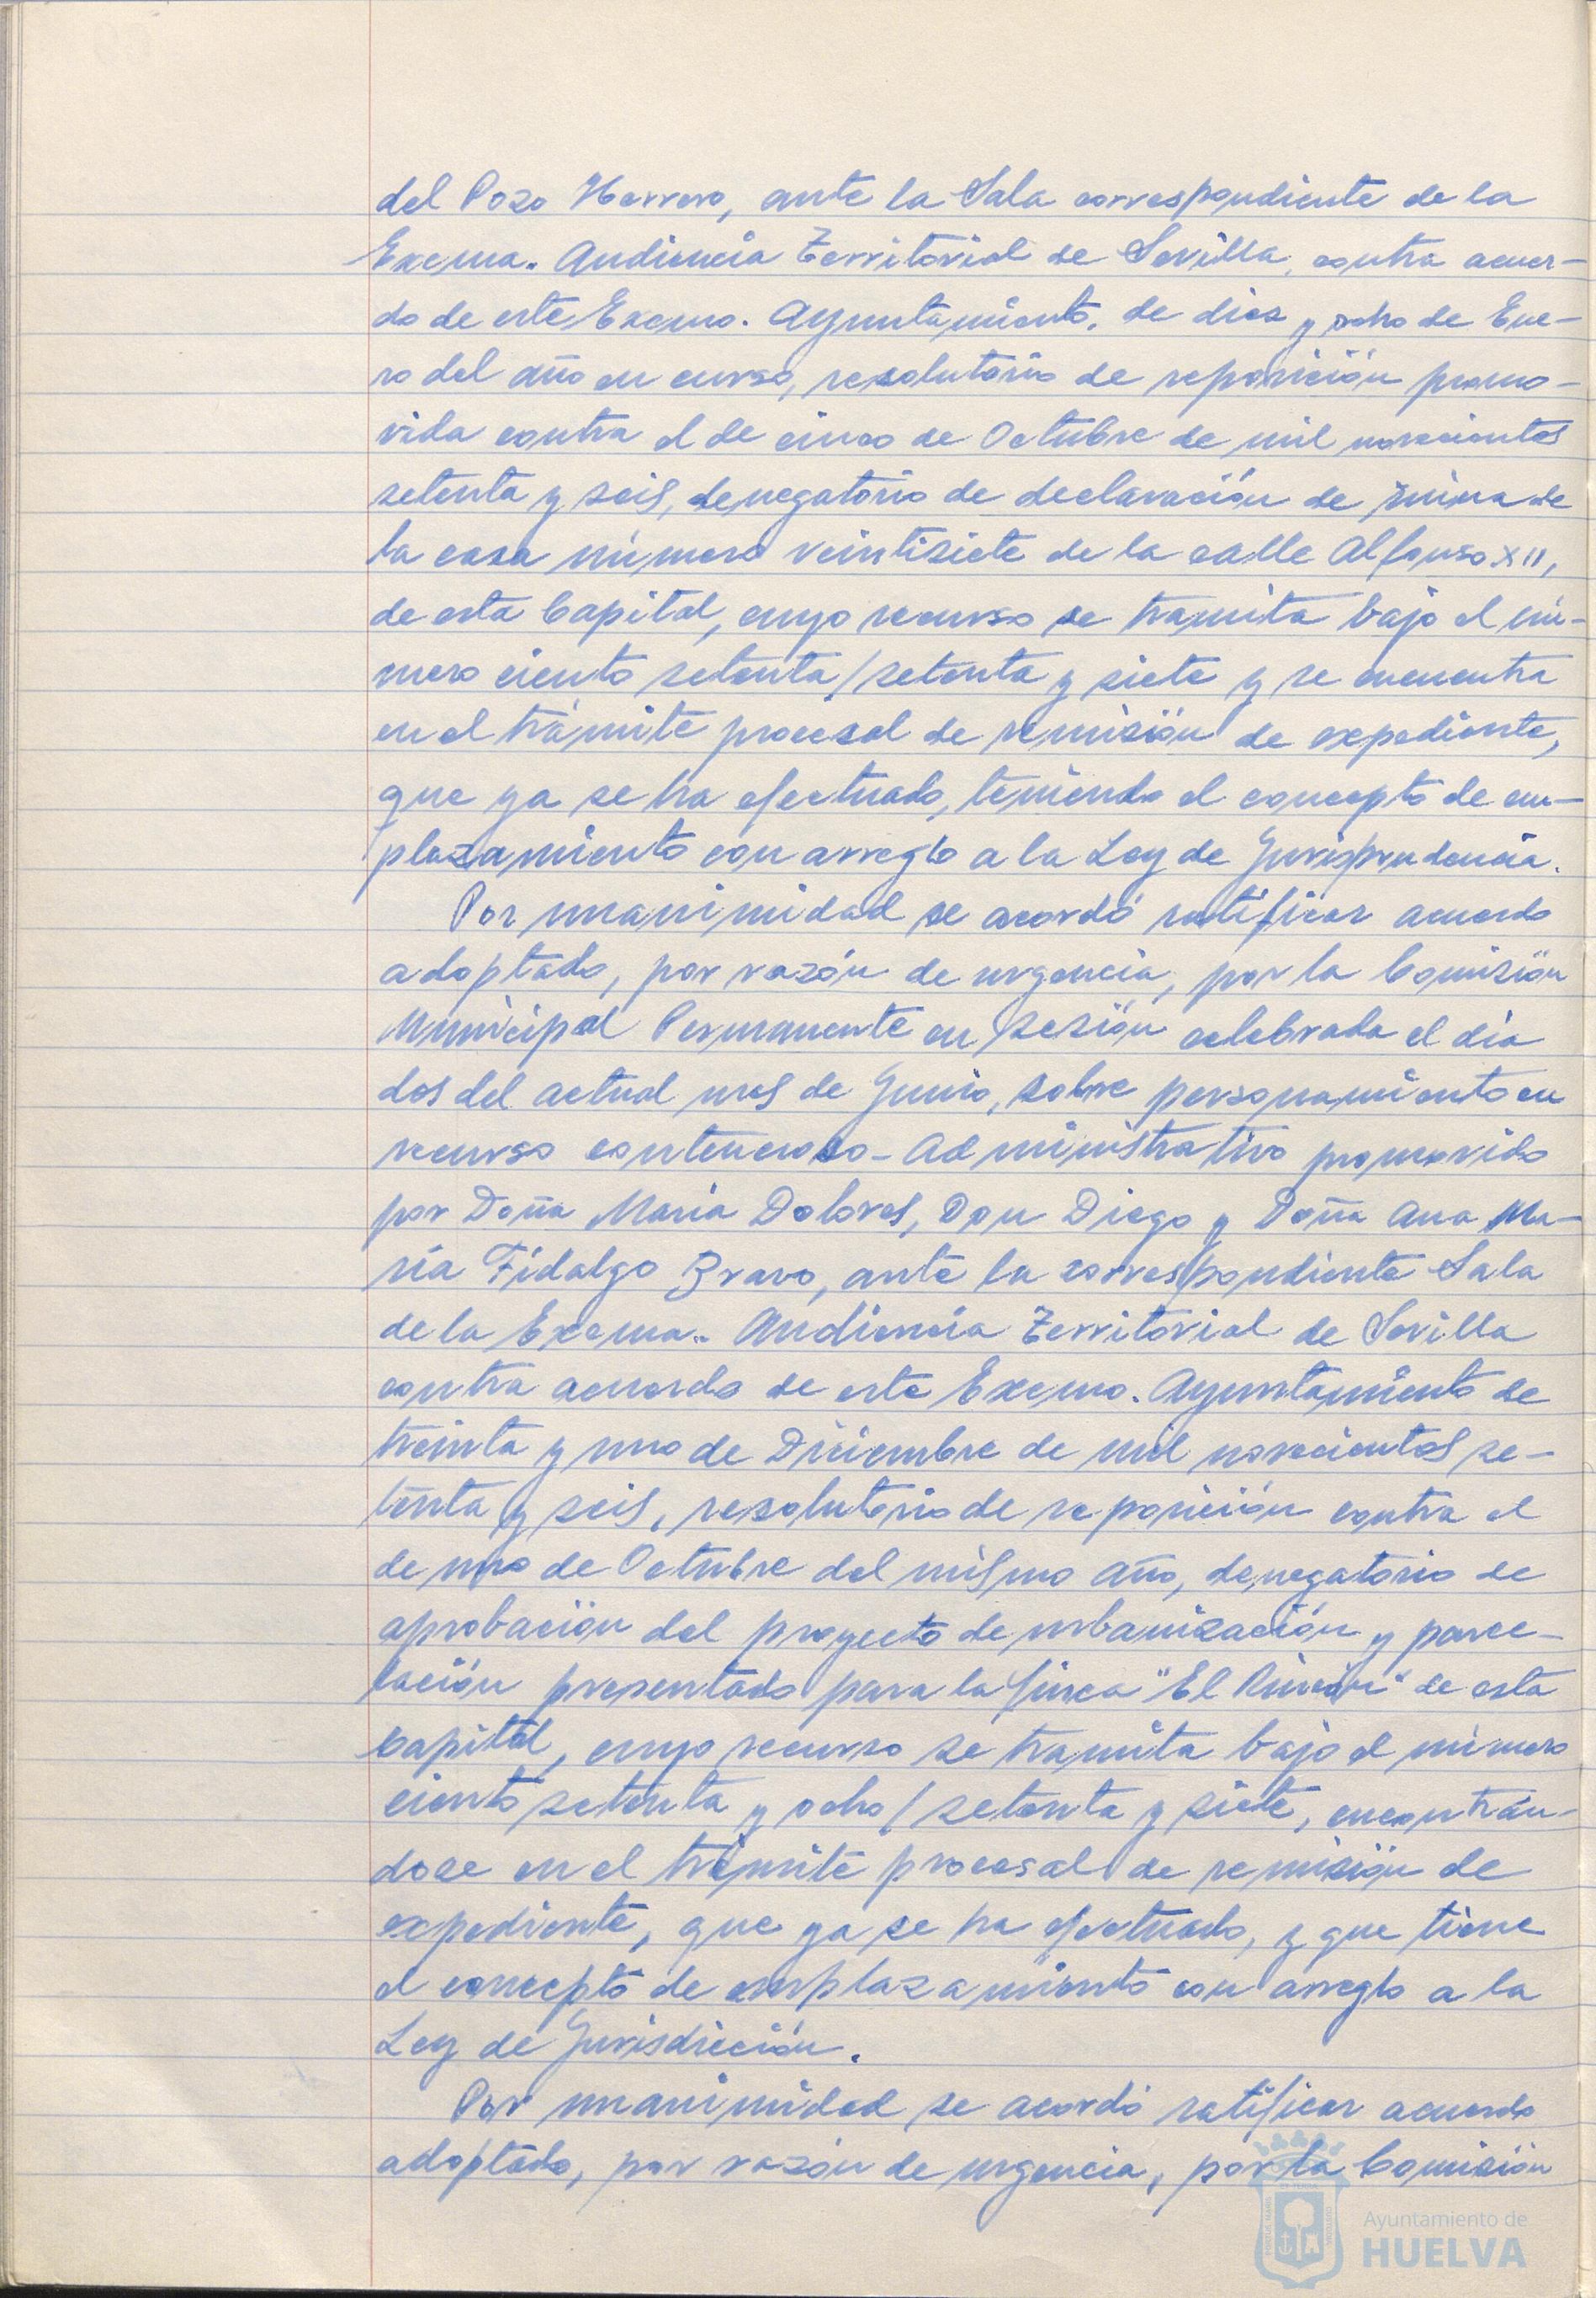 del Pozo Herrero, ante la Sala correspondiente de la
Excma. Audiencia Territorial de Sevilla, contra acuer-
do de este Excmo. Ayuntamiento, de diez y ocho de Ene-
ro del año en curso, resolutorio de reposición promo-
vida contra el de cinco de Octubre de mil novecientos
setenta y seis, denegatorio de declaración de ruina de
la casa número veintisiete de la calle Alfonso XII,
de esta Capital, cuyo recurso se tramita bajo el nú-
mero ciento setenta/setenta y siete y se encuentra
en el trámite procesal de remisión de expediente,
que ya se ha efectuado, teniendo el concepto de em-
plazamiento con arreglo a la Ley de Jurisprudencia.
Por unanimidad se acordó ratificar acuerdo
adoptado, por razón de urgencia, por la Comisión
Municipal Permanente en sesión celebrada el día
dos del actual mes de Junio, sobre personamiento en
recurso contencioso-administrativo promovido
por Doña María Dolores, Don Diego y Doña Ana Ma-
ría Fidalgo Bravo, ante la correspondiente Sala
de la Excma. Audiencia Territorial de Sevilla
contra acuerdo de este Excmo. Ayuntamiento de
treinta y uno de Diciembre de mil novecientos se-
tenta y seis, resolutorio de reposición contra el
de uno de Octubre del mismo año, denegatorio de
aprobación del proyecto de urbanización y parce-
lación presentado para la finca "El Rincón" de esta
Capital, cuyo recurso se tramita bajo el número
ciento setenta y ocho/setenta y siete, encontrán-
dose en el trámite procesal de remisión de
expediente, que ya se ha efectuado, y que tiene
el concepto de emplazamiento con arreglo a la
Ley de Jurisdicción.
Por unanimidad se acordó ratificar acuerdo
adoptado, por razón de urgencia, por la Comisión
Ayuntamiento de
HUELVA